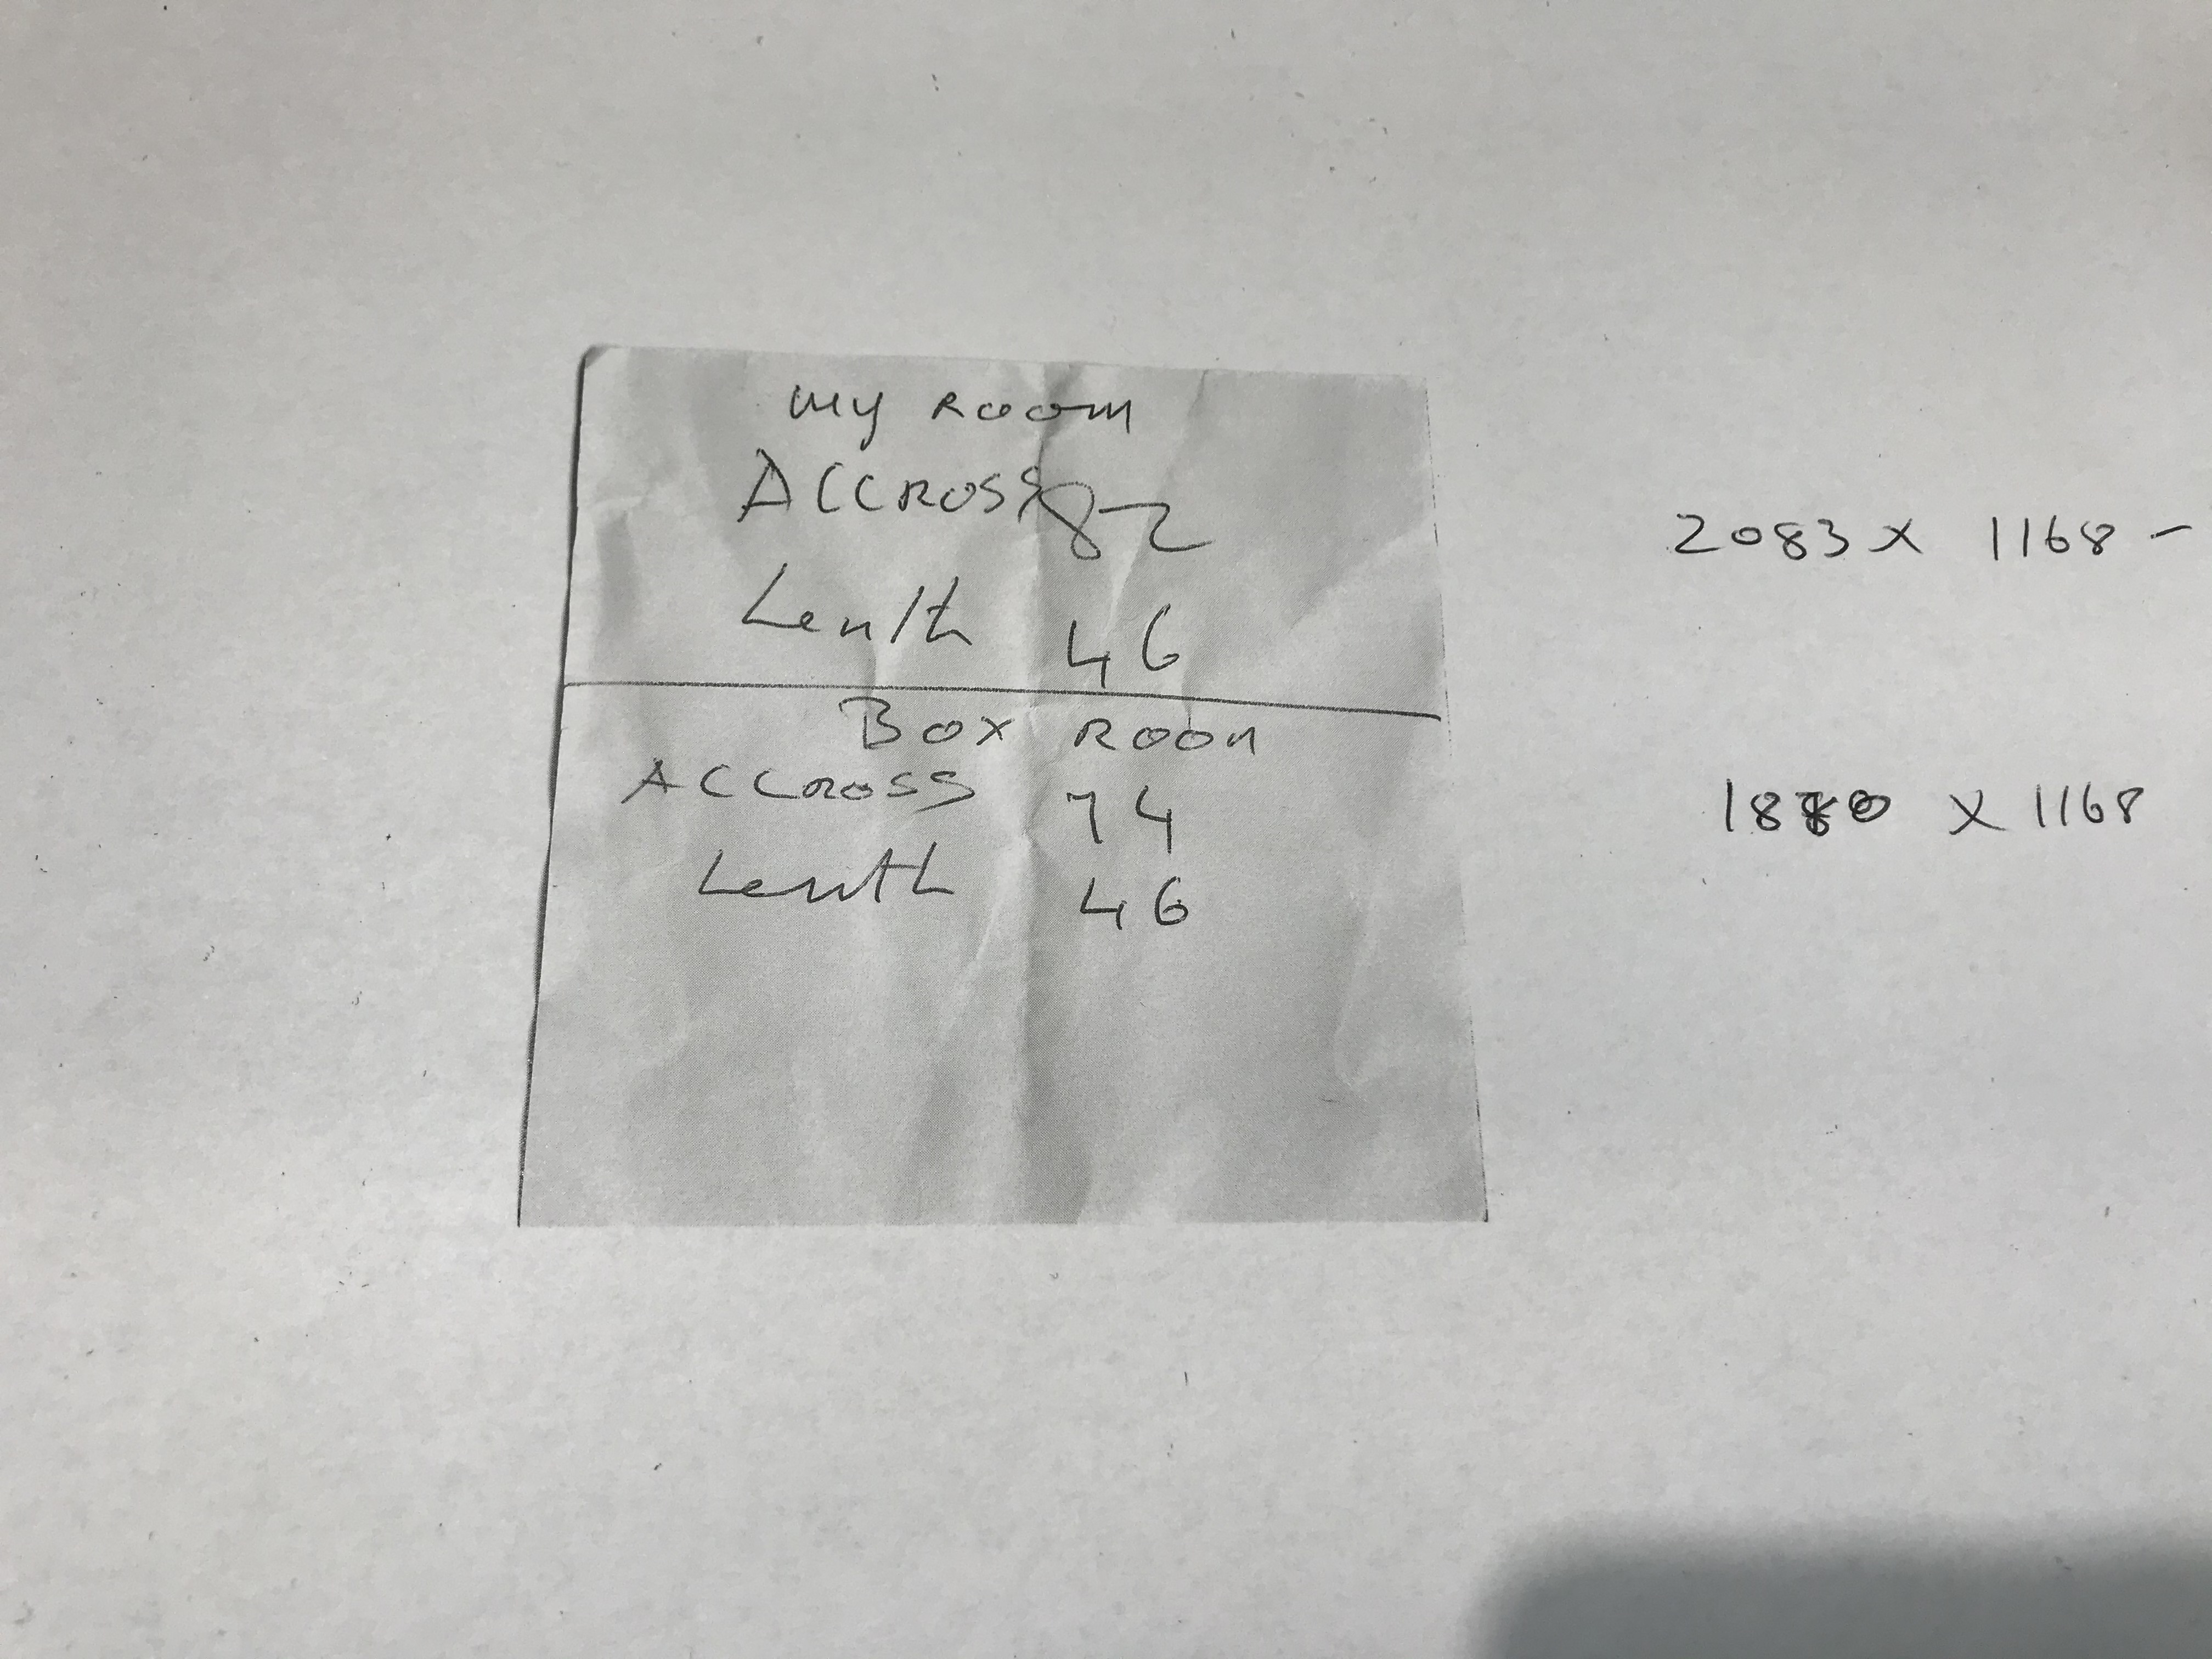 my room
Accross 82
Lenth 46
2083 x 1168 -
Box Room
Accross 74
Lenth 46
1880 x 1168